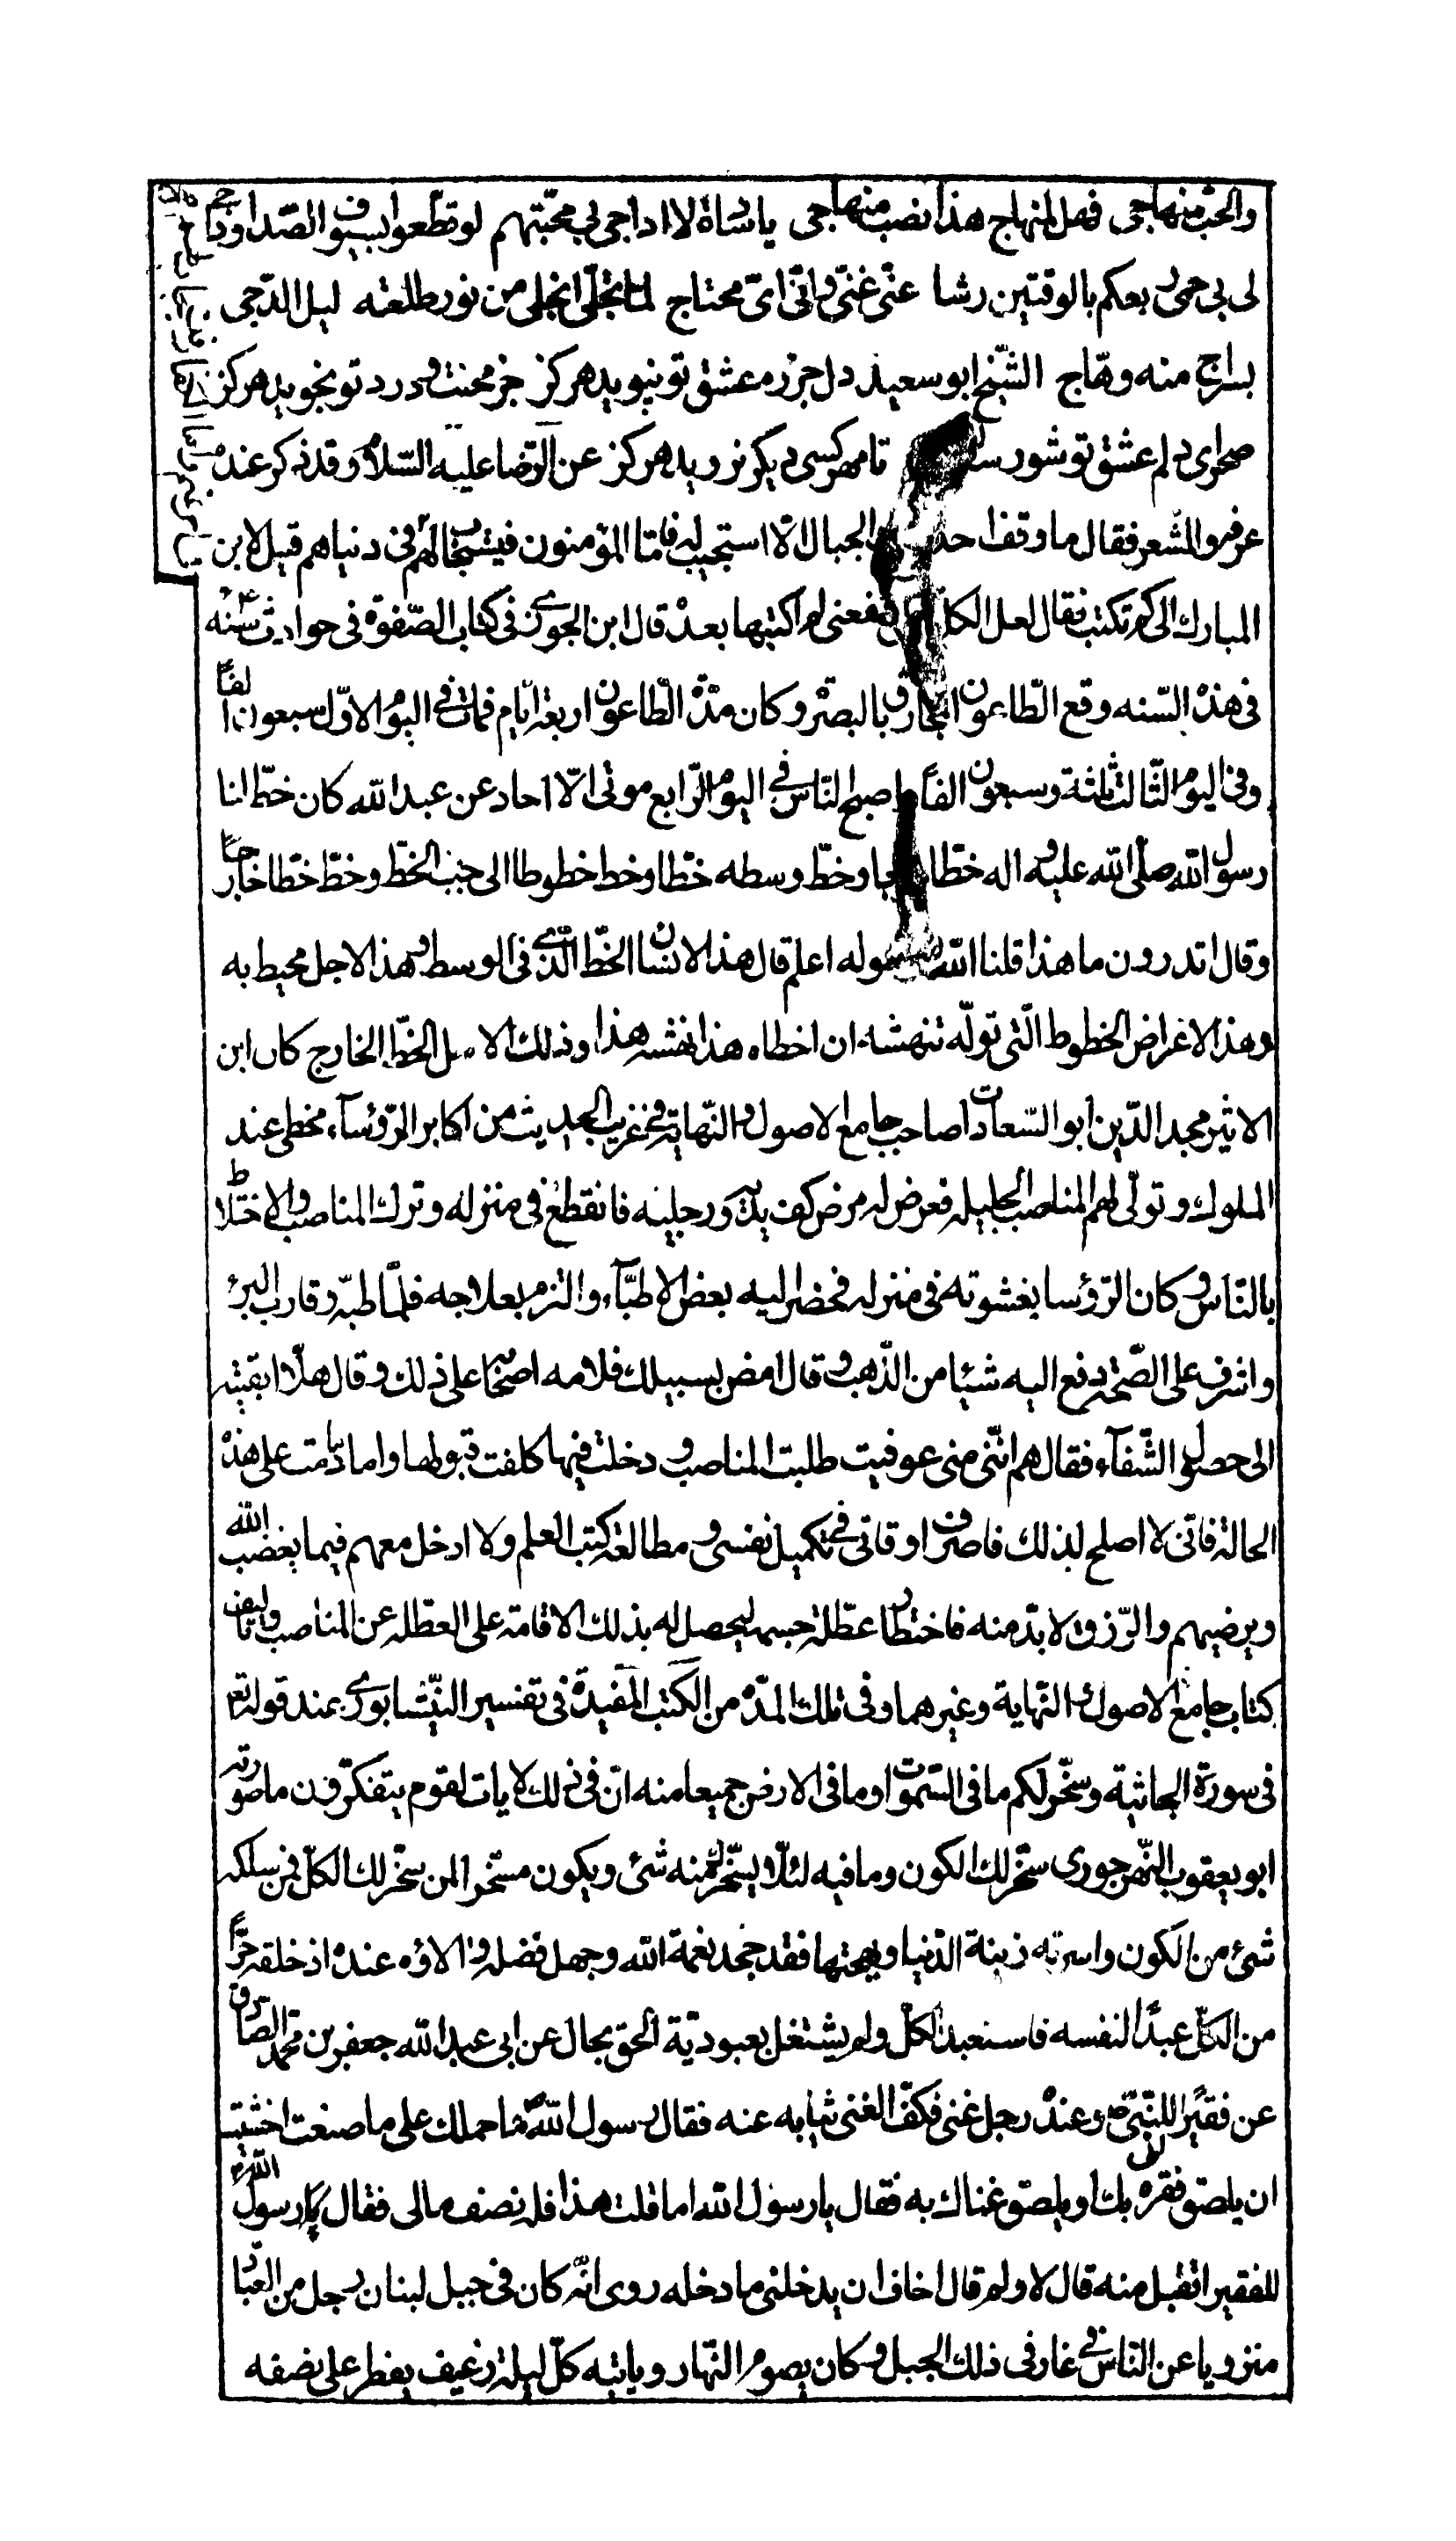 والحب منهاجي فهل لمنهاج هذا نصب منهاجي ياسادة لا اداجي في محبتهم لو قطعوا بسيوف الصد اوداجي
لي في حمى ربعكم بالرقمتين رشا عني غني واني اي محتاج لما تجلى انجلى من نور طلعته ليل الدجى
بسراج منه وهاج الشيخ ابو سعيد دل جز ره عشق تو نپويد هرگز جز محنت و درد تو نجويد هرگز
صحراى دلم عشق تو شورستان تا مهر كسى ديگر نرويد هرگز عن الرضا عليه السلام وقد ذكر عنده
عرفه والمشعر فقال ما وقف احد الجبال الا استجيب له فاما المؤمنون فيستجاب لهم في دنياهم قيل لابن
المبارك الى كم تكتب فقال لعل الكلمة تنفعني لم اكتبها بعد قال ابن الجوزي في كتاب الصفوة في حوادث سنه
في هذه السنه وقع الطاعون الجارف بالبصره وكان مدة الطاعون اربعة ايام فمات في اليوم الاول سبعون الفا
وفي اليوم الثالث ثلثة وسبعون الفا واصبح الناس في اليوم الرابع موتى الا احاد عن عبد الله كان خط لنا
رسول الله صلى الله عليه واله خطا وخط وسطه خطا وخط خطوطا الى جنب الخط وخط خطا خارجا
وقال اتدرون ما هذا قلنا الله ورسوله اعلم قال هذا الانسان الخط الذي في الوسط وهذا الاجل محيط به
وهذا الاعراض الخطوط التي حوله تنهشه ان اخطاه هذا نهشه هذا وذلك الامل الخط الخارج كان ابن
الاثير مجد الدين ابو السعادات صاحب جامع الاصول والنهاية في غريب الحديث من اكابر الرؤساء مخطى عند
الملوك وتولى لهم المناصب الجليله فعرض له مرض كف يديه ورجليه فانقطع في منزله وترك المناصب والاختلاط
بالناس وكان الرؤسا يغشوته في منزله فحضر اليه بعض الاطباء والتزم بعلاجه فلما طبه وقارب البرء
واشرف على الصحة دفع اليه شيئا من الذهب وقال امض بسبيلك فلامه اصحابه على ذلك وقال هلا ابقيته
الى حصول الشفاء فقال لهم انني متى عوفيت طلبت المناصب ودخلت فيها وكلفت قبولها واما ما دمت على هذه
الحالة فاني لا اصلح لذلك فاصرف اوقاتي في تكميل نفسي ومطالعة كتب العلم ولا ادخل معهم فيما يغضب الله
ويرضيهم والرزق لابد منه فاختار عطلة جسمه ليحصل له بذلك الاقامة على العطله عن المناصب وتاليف
كتاب جامع الاصول والنهاية وغيرهما وفي تلك المده من الكتب المفيدة في تفسير النيشابوري عند قوله تع
في سورة الجاثية وسخر لكم ما في السموات وما في الارض جميعا منه ان في ذلك لايات لقوم يتفكرون ما صورته
ابو يعقوب النهرجوري سخر لك الكون وما فيه لئلا يسخرك منه شئ ويكون مسخرا لمن سخر لك الكل فمن سلكه
شئ من الكون واسرته زينة الدنيا وبهجتها فقد جحد نعمة الله وجهل فضله والاؤه عنده اذ خلقه حرا
من الكل عبدا لنفسه فاستعبد الكل ولم يشتغل بعبودية الحق بحال عن ابي عبد الله جعفر بن محمد الصادق
عن فقيرا للنبي ص وعنده رجل غني فكف الغني ثيابه عنه فقال رسول الله ص ما حملك على ما صنعت اخشيت
ان يلصق فقره بك او يلصق غناك به فقال يا رسول الله اما قلت هذا فله نصف مالي فقال يا رسول الله
للفقير اتقبل منه قال لا ولم قال اخاف ان يدخلني ما دخله روى انه كان في جبل لبنان رجل من العباد
منزويا عن الناس في غار في ذلك الجبل وكان يصوم النهار وياتيه كل ليلة رغيف يفطر على نصفه